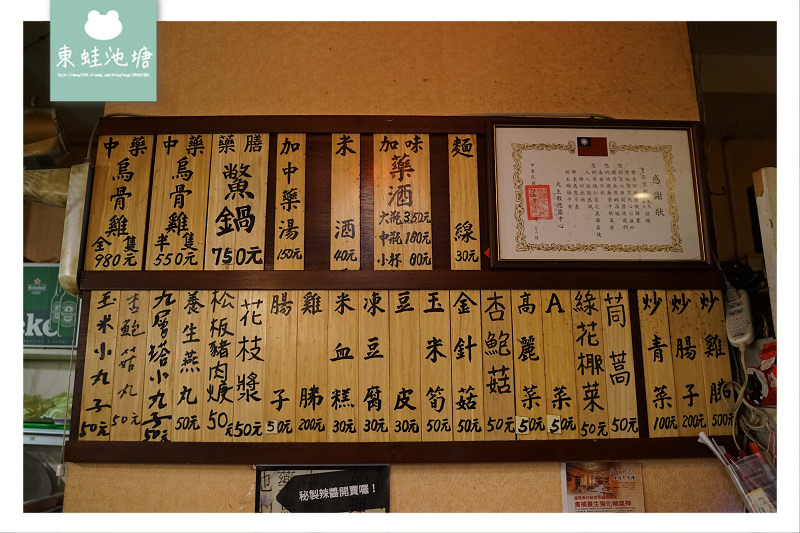 東蛙池塘
中藥 烏骨雞 全隻 980元
中藥 烏骨雞 半隻 550元
藥膳 鱉鍋 750元
加中藥湯 150元
米酒 40元
加味藥酒
大瓶 350元
中瓶 180元
小杯 80元
麵線 30元
感謝狀
玉米小丸子 50元
杏鮑菇丸 50元
九層塔小丸子 50元
養生燕丸 50元
松板豬肉焿 50元
花枝漿 50元
腸子 50元
雞胇 200元
米血糕 30元
凍豆腐 30元
豆皮 30元
玉米筍 50元
金針菇 50元
杏鮑菇 50元
高麗菜 50元
A菜 50元
綠花椰菜 50元
茼蒿 50元
炒青菜 100元
炒腸子 200元
炒雞胇 500元
秘製辣醬開賣囉！
食補養生強化精氣神